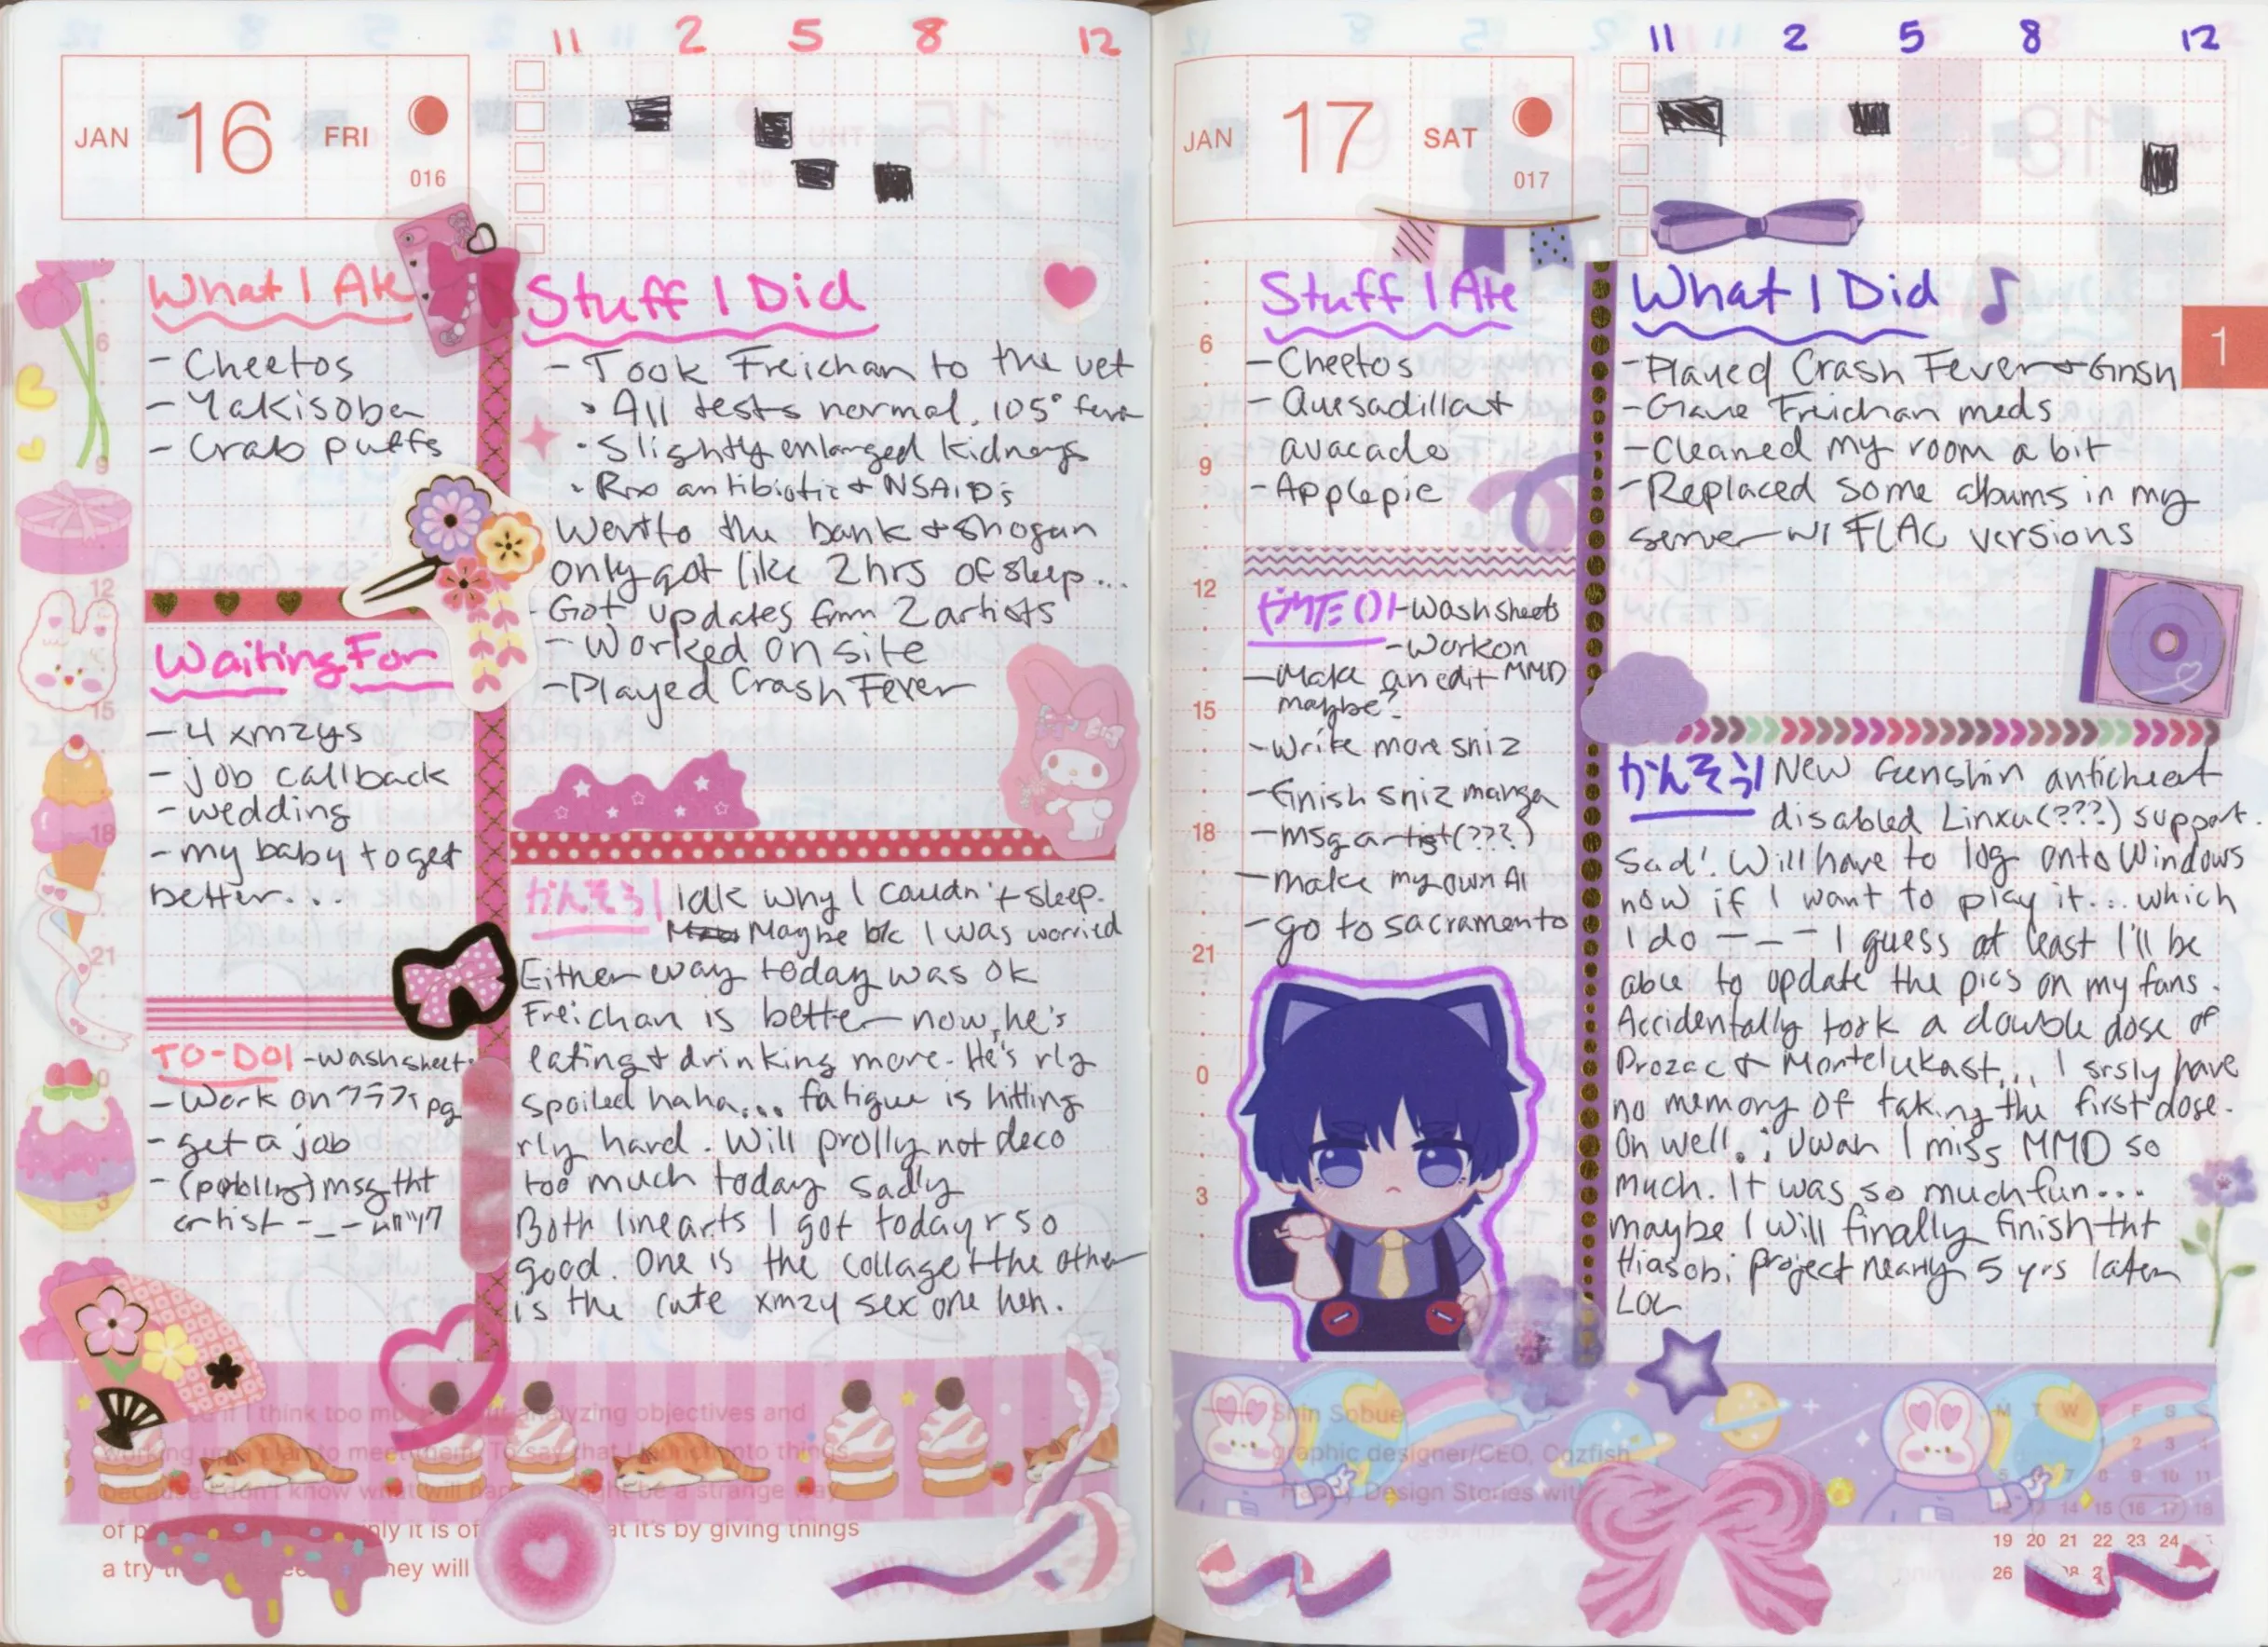 11 2 5 8 12
JAN 16 FRI
016
What I Ate
- Cheetos
- Yakisoba
- Crab puffs
Waiting For
- 4 xmzys
- job callback
- wedding
- my baby to get
better...
TO-DO! - wash sheets
- Work on pg
- get a job
- msg tht
artist - _ -
Stuff I Did
- Took Freichan to the vet
• All tests normal. 105° fever
• Slightly enlarged kidneys
• Rx antibiotic + NSAIDs
Went to the bank + shogun
only got like 2 hrs of sleep...
- Got updates from 2 artists
- Worked on site
- Played Crash Fever
かんそう! Idk why I couldn't sleep.
Maybe bc I was worried
Either way today was ok
Freichan is better now, he's
eating + drinking more. He's rly
spoiled haha... fatigue is hitting
rly hard. Will prolly not deco
too much today sadly
Both linearts I got today r so
good. One is the collage + the other
is the cute xmzy sex one heh.
if I think too mu yzing objectives and
working up plan to meet them. To say that I into things
because I don't know what will hap ght be a strange way
of p nly it is of at it's by giving things
a try hey will
11 2 5 8 12
JAN 17 SAT
017
1
Stuff I Ate
- Cheetos
- Quesadilla +
avacado
- Apple pie
- Wash sheets
- Work on
MMD
- Make an edit
maybe?
- Write more sniz
- Finish sniz manga
- msg artist (???)
- make my own AI
- go to sacramento
What I Did
- Played Crash Fever + Gnsn
- Gave Freichan meds
- Cleaned my room a bit
- Replaced some albums in my
server w/ FLAC versions
かんそう! New Genshin anticheat
disabled Linxu (???) support.
Sad! Will have to log onto Windows
now if I want to play it... which
I do - _ - I guess at least I'll be
able to update the pics on my fans.
Accidentally took a double dose of
Prozac + Montelukast... I srsly have
no memory of taking the first dose.
Oh well. ; Uwah I miss MMD so
much. It was so much fun...
maybe I will finally finish tht
Hiasobi project nearly 5 yrs later
LOL
6
9
12
15
18
21
0
3
6
9
12
15
18
21
0
3
Shin Sobue
graphic designer/CEO, Cozfish
Happy Design Stories wit
M T W T F S S
1 2 3 4
5 6 7 8 9 10 11
12 13 14 15 16 17 18
19 20 21 22 23 24
26 28